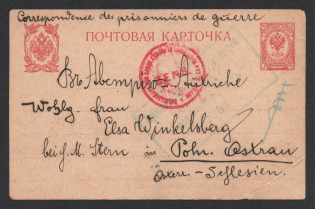 Correspondence des prisonniers de guerre
ПОЧТОВАЯ КАРТОЧКА
Въ Autriche
Wohlg. frau
Elsa Winkelsberg
bei f. M. Stern in Poln. Ostrau
Schlesien.